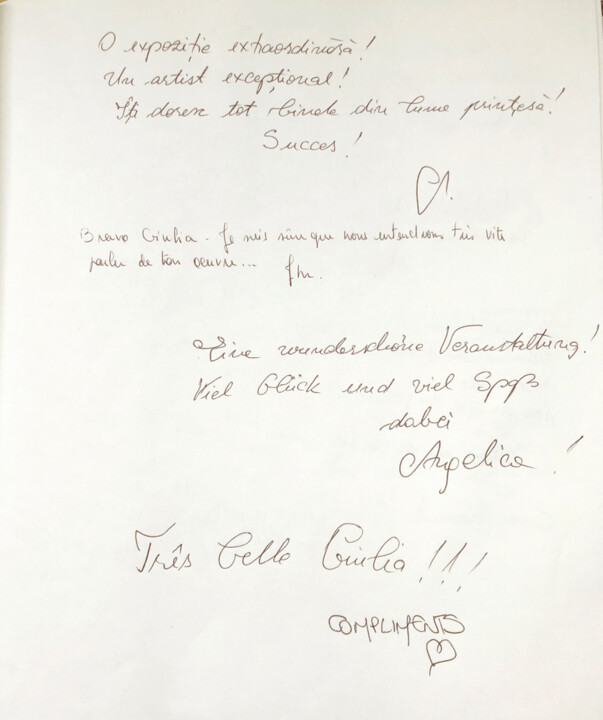 O expoziție extraordinară!
Un artist excepțional!
Îți doresc tot binele din lume prințesă!
Succes!
Bravo Giulia. Je suis sûre que nous entendrons très vite
parler de ton oeuvre...
Eine wunderschöne Veranstaltung!
Viel Glück und viel Spaß
dabei
Angelica!
Três belle Giulia!!!
COMPLIMENTS